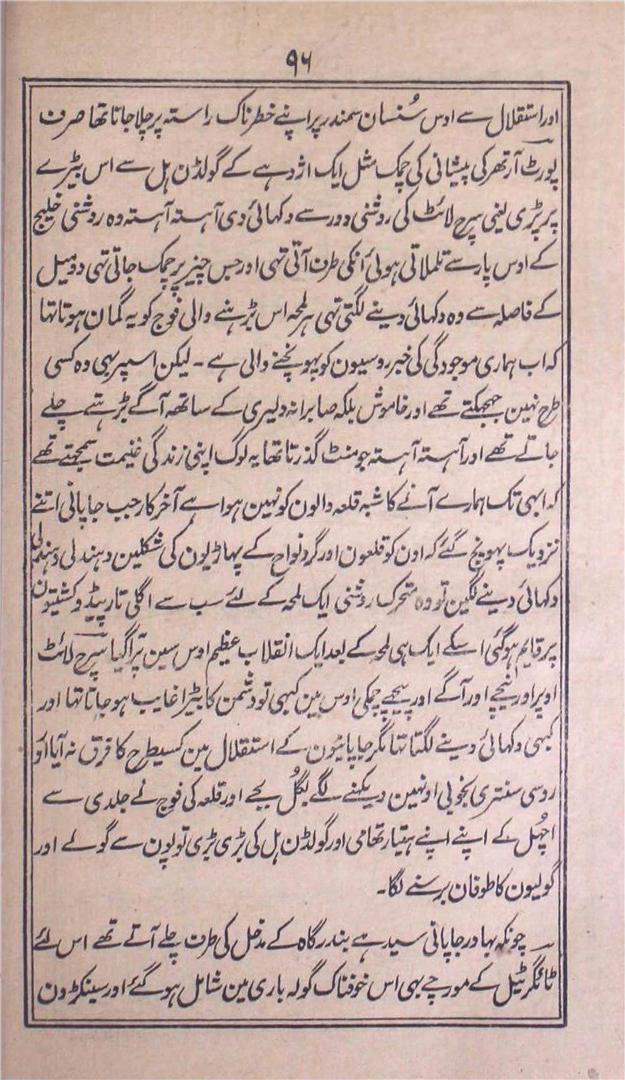 ۹۶
اور استقلال سے اوس سُنسان سمندر پر اپنے خطرناک راستہ پر چلا جاتا تھا صرف
پورٹ آرتھر کی پیشانی کی چمک مثل ایک اژدہے کے گولڈن ہل سے اس بیڑے
پر پڑی یعنی سرچ لائٹ کی روشنی دور سے دکہائی دی آہستہ آہستہ وہ روشنی خلیج
کے اوس پار سے تلملاتی ہوئی اُنکی طرف آتی تہی اور جس چیز پر چمک جاتی تہی دو میل
کے فاصلہ سے وہ دکہائی دینے لگتی تہی ہر لمحہ اس بڑہنے والی فوج کو یہ گمان ہوتا تہا
کہ اب ہماری موجودگی کی خبر روسیون کو پہونچنے والی ہے ۔ لیکن اسپر بہی وہ کسی
طرح نہین جہجکتے تھے اور خاموش بلکہ صابرانہ دلیری کے ساتھہ آگے بڑہتے چلے
جاتے تھے اور آہستہ آہستہ جو منٹ گذرتا تھا یہ لوگ اپنی زندگی غنیمت سمجہتے تھے
کہ ابہی تک ہمارے آنے کا شبہ قلعہ والون کو نہین ہوا ہے آخر کار جب جاپانی اتنے
نزدیک پہونچ گئے کہ اون کو قلعون اور گرد نواح کے پہاڑیون کی شکلین دہندلی دہندلی
دکہائی دینے لگین تو وہ متحرک روشنی ایک لمحہ کے لئے سب سے اگلی تارپیڈو کشتیون
پر قایم ہو گئی اسکے ایک ہی لمحہ کے بعد ایک انقلاب عظیم اوس سین پر آگیا سرچ لائٹ
اوپر اور نیچے اور آگے اور پیچھے چمکی اوس مین کبہی تو دشمن کا بیڑا غایب ہو جاتا تہا اور
کبہی دکہائی دینے لگتا تہا مگر جاپانیون کے استقلال مین کسیطرح کا فرق نہ آیا اور
روسی سنتری بخوبی اونہین دیکہنے لگے بگُل بجے اور قلعہ کی فوج نے جلدی سے
اچہل کے اپنے اپنے ہتیار تھامی اور گولڈن ہل کی بڑی بڑی توپون سے گولے اور
گولیون کا طوفان برسنے لگا۔
چونکہ بہادر جاپانی سیدہے بندرگاہ کے مدخل کی طرف چلے آتے تھے اس لئے
ٹائگرٹیل کے مورچے بہی اس خوفناک گولہ باری مین شامل ہو گئے اور سینکڑون